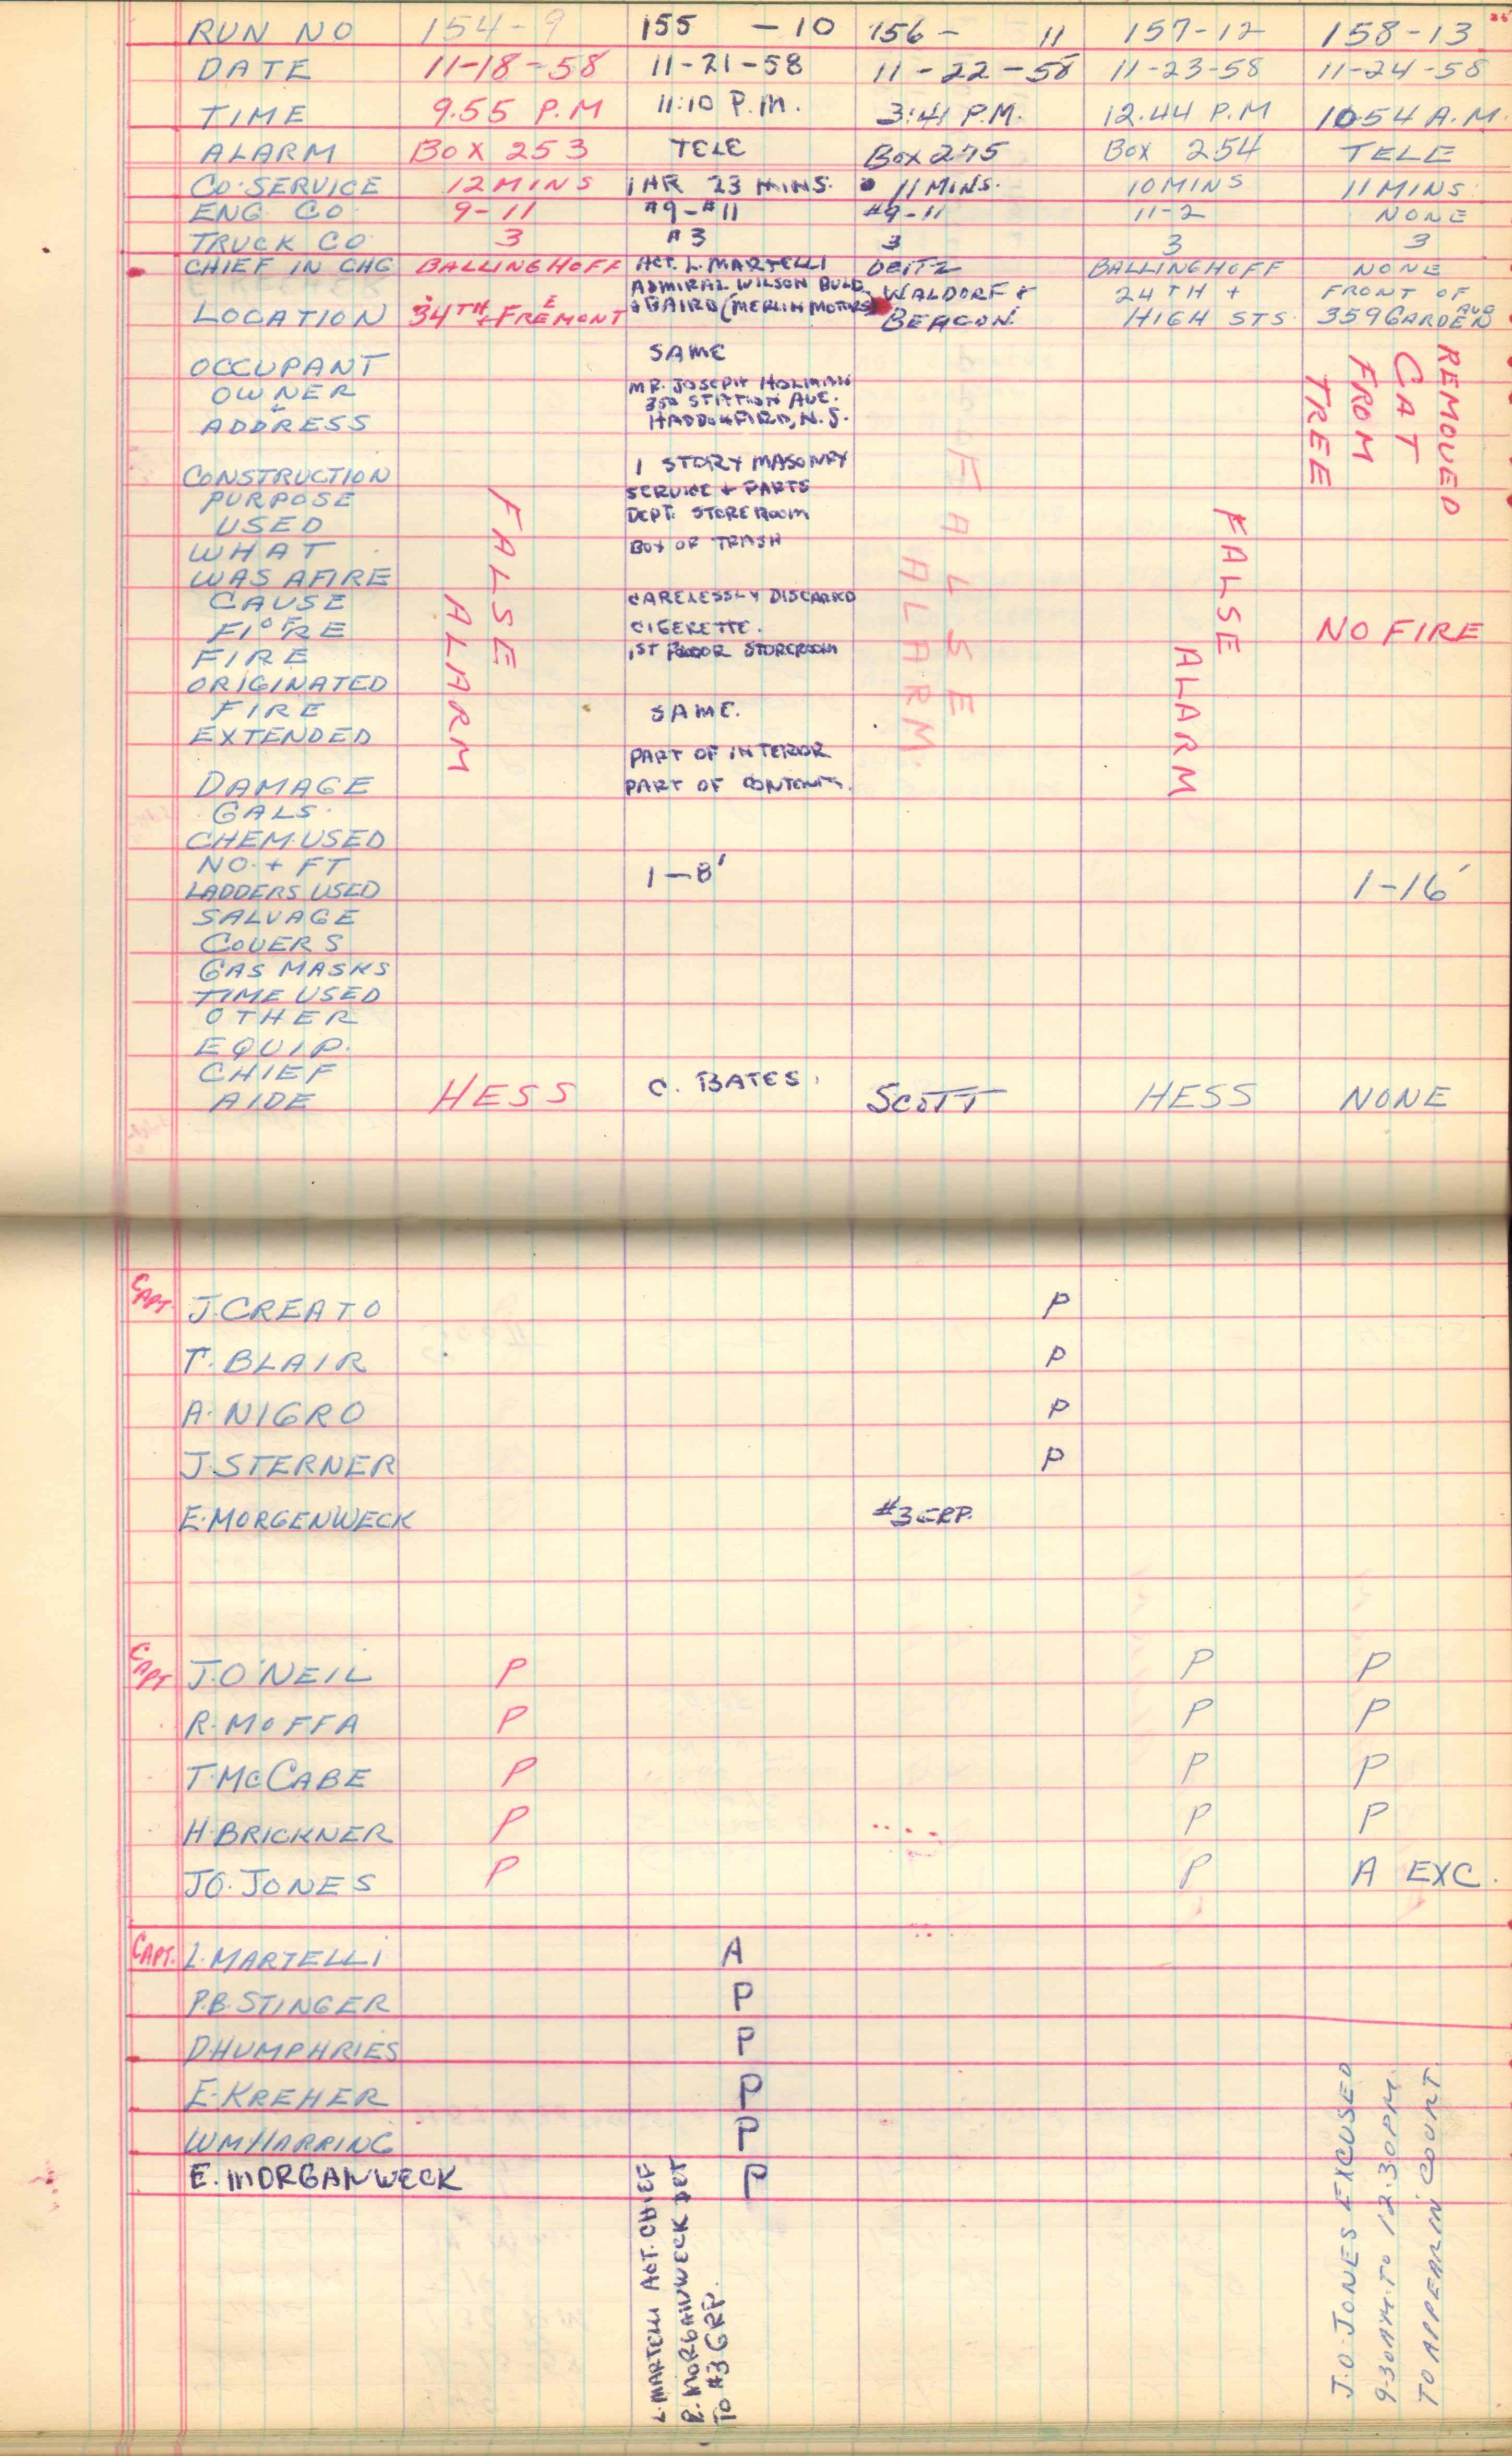 RUN NO 154-9 155 - 10 156 - 11 157-12 158-13
DATE 11-18-58 11-21-58 11-22-58 11-23-58 11-24-58
TIME 9.55 P.M 11:10 P.M. 3:41 P.M. 12.44 P.M 10 54 A.M.
ALARM BOX 253 TELE BOX 275 BOX 254 TELE
CO. SERVICE 12 MINS 1 HR 23 MINS. 11 MINS. 10 MINS 11 MINS.
ENG CO. 9-11 #9-#11 #9-11 11-2 NONE
TRUCK CO 3 #3 3 3 3
CHIEF IN CHG BALLINGHOFF ACT. L. MARTELLI DEITZ BALLINGHOFF NONE
LOCATION 34TH + FREMONT
ADMIRAL WILSON BULD.
+ BAIRD (MERLIN MOTORS)
WALDORF +
BEACON.
24TH +
HIGH STS.
FRONT OF
359 GARDEN AVE
OCCUPANT SAME
OWNER
+
ADDRESS
MR. JOSEPH HOLMAN
350 STATION AVE.
HADDONFIRD, N.J.
CONSTRUCTION 1 STORY MASONRY
PURPOSE SERVICE + PARTS
USED DEPT. STOREROOM
WHAT BOX OF TRASH
WAS AFIRE
CAUSE CARELESSLY DISCARRD
OF
FIRE CIGERETTE.
FIRE 1ST FLOOR STOREROOM
ORIGINATED
FIRE SAME.
EXTENDED
PART OF INTERIOR
DAMAGE PART OF CONTENTS.
FALSE
ALARM
FALSE
ALARM.
FALSE
ALARM
REMOVED
CAT
FROM
TREE
NO FIRE
GALS.
CHEM. USED
NO. + FT 1-8'
LADDERS USED 1-16'
SALVAGE
COVERS
GAS MASKS
TIME USED
OTHER
EQUIP.
CHIEF
AIDE HESS C. BATES. SCOTT HESS NONE
CAPT. J. CREATO P
T. BLAIR P
A. NIGRO P
J. STERNER P
E. MORGENWECK #3 GRP.
CAPT J. O'NEIL P P P
R. MOFFA P P P
T. McCABE P P P
H. BRICKNER P P P
J.O. JONES P P A EXC.
CAPT. L. MARTELLI A
P.B. STINGER P
D HUMPHRIES P
E. KREHER P
WM HARRING P
E. MORGANWECK P
L. MARTELLI ACT. CHIEF
E. MORGANWECK DET
TO #3 GRP.
J.O. JONES EXCUSED
9-30 AM. TO 12.30 PM.
TO APPEAR IN COURT.